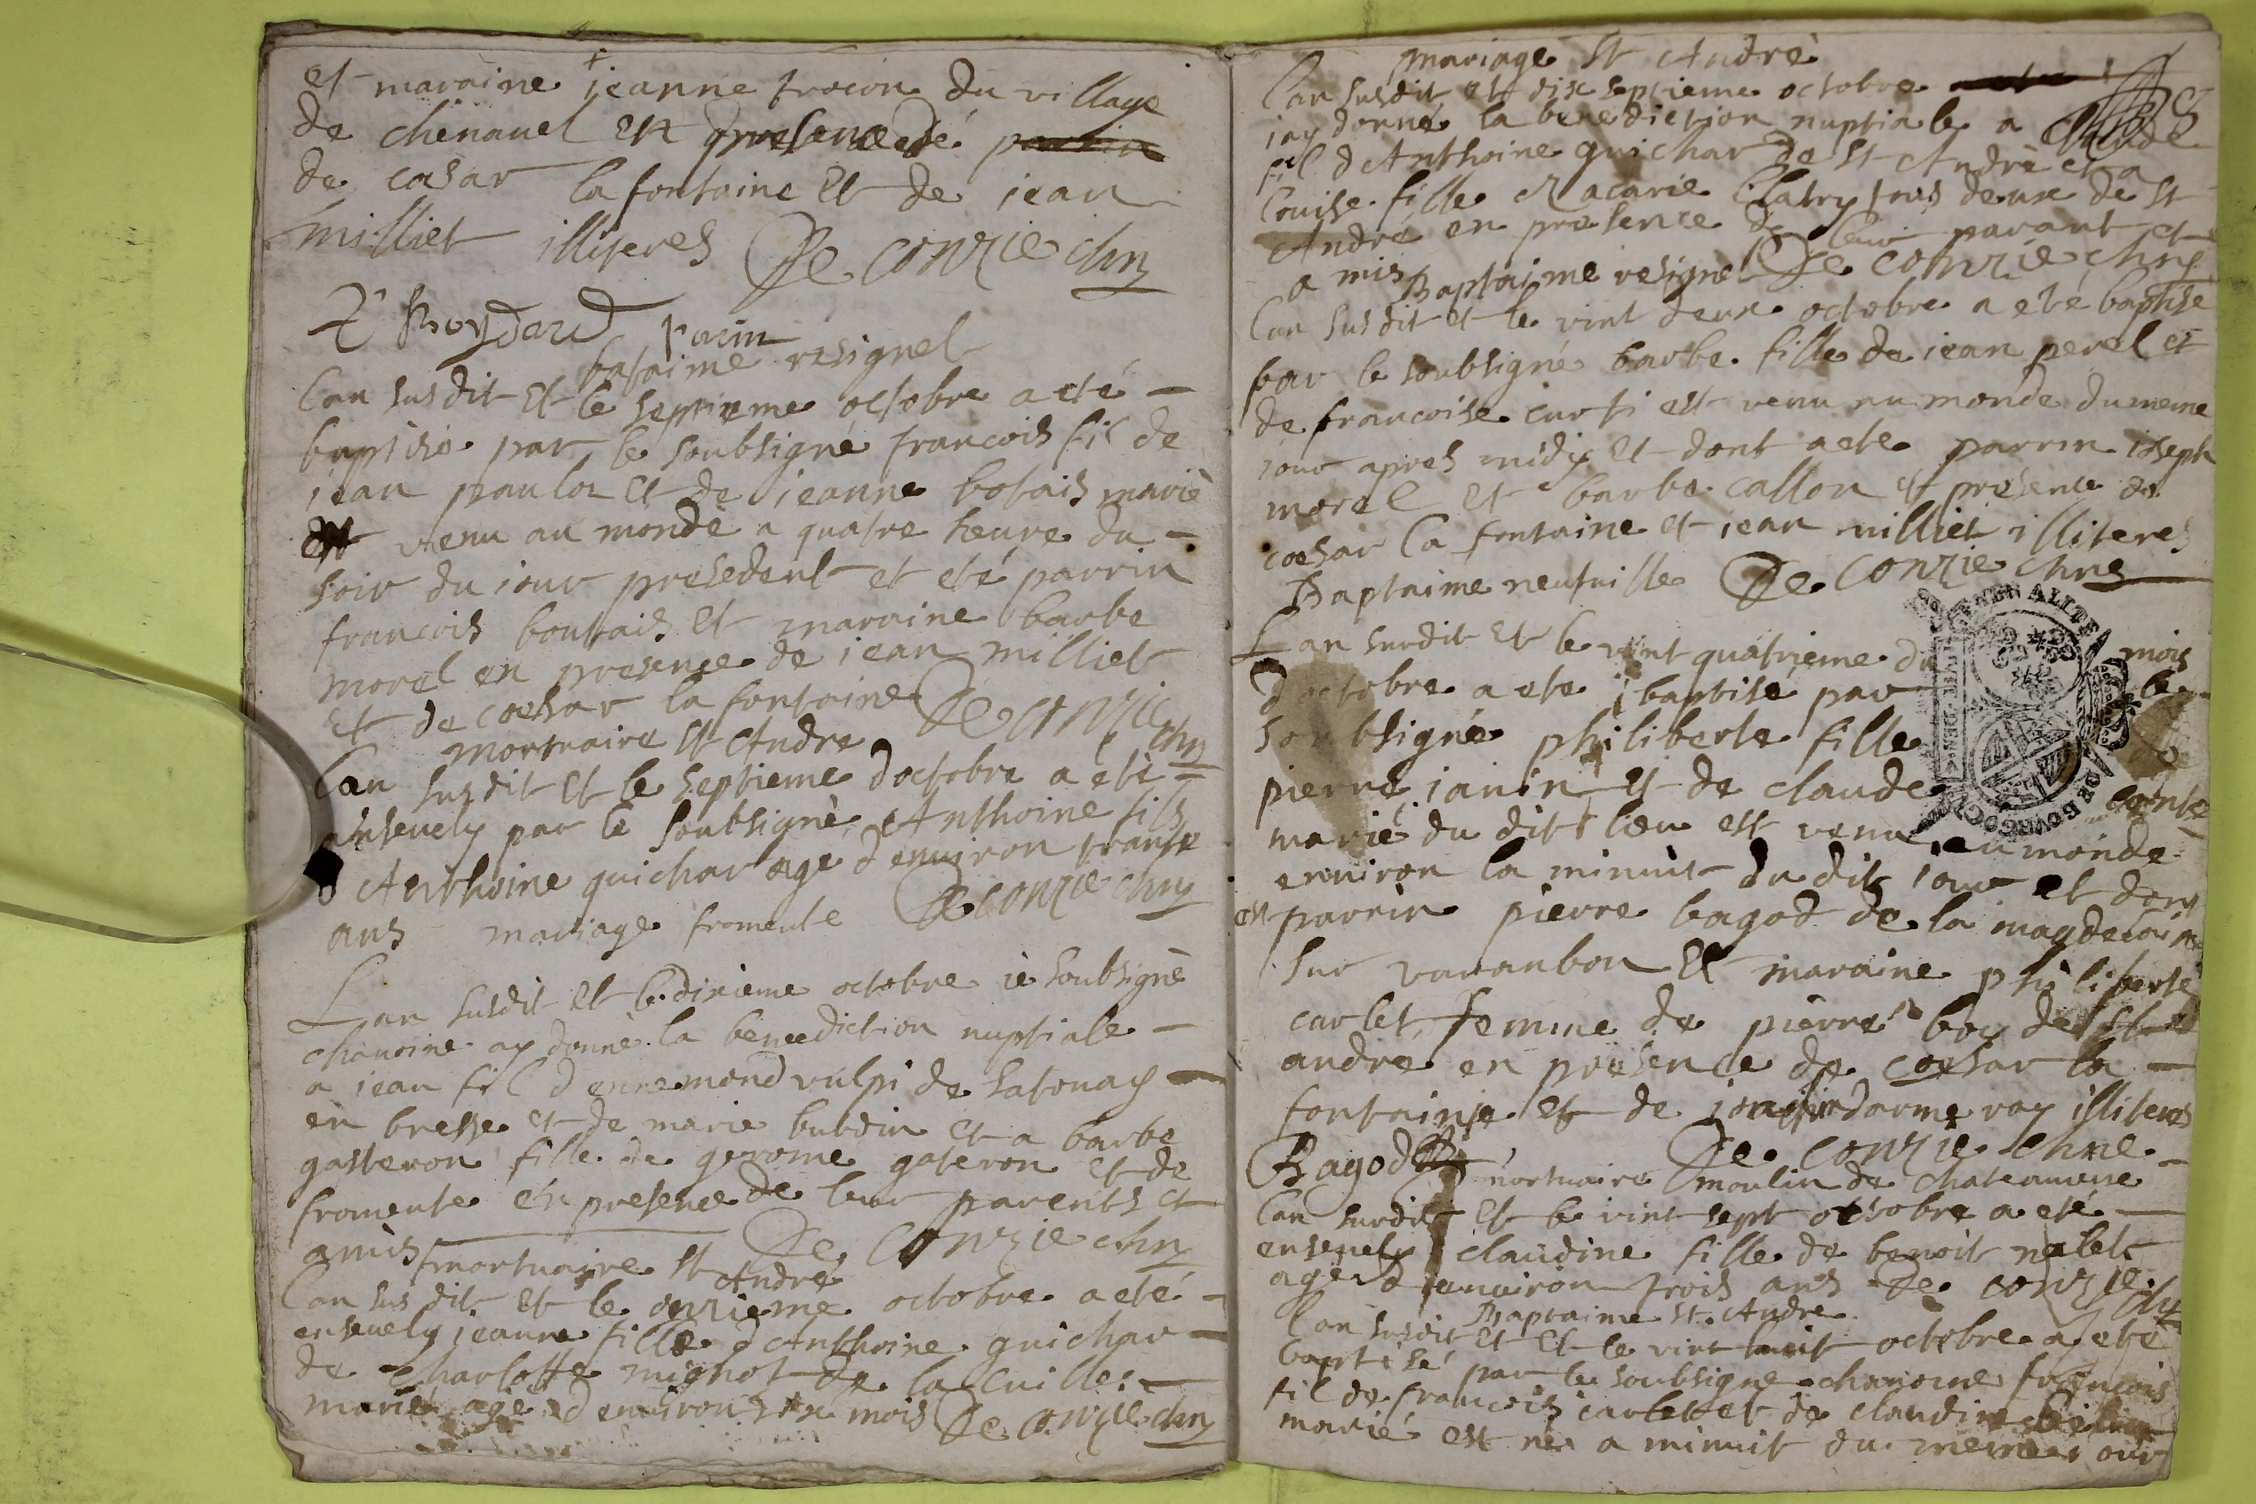 et maraine jeanne frocon du village
de chenauel en presence de
de casar la fontaine et de jean
milliet illiteres De Conzie chn
Roydard parin
bataime resignel
lan susdit et le septieme octobre a eté
baptisé par le soubsigné francois fil de
jean paulot et de jeanne botais marié
est venu au monde a quatre heure du
soir du jour presedent et eté parrin
francois boutais et maraine barbe
morel en presense de jean milliet
et de coesar la fontaine De Conzie chn
mortuaire st Andre
lan susdit et le septieme doctobre a eté
ensevely par le soubsigné Anthoine fils
d Anthoine guichar agé denviron trante
ans De Conzie chn
mariage fromente
Lan susdit et le dixieme octobre je soubsigné
chanoine ay donné la benediction nuptiale
a jean fil d ennemond vulpi de Satonay
en bresse et de marie burdin et a barbe
gasteron fille de gerome gateron et de
fromente en presence de leur parents et
amis De Conzie chn
mortuaire st André
lan susdit et le onzieme octobre a eté
ensevely jeanne fille d Anthoine guichar
de Charlotte mignot de la Cuille
marié agé d environ six mois De Conzie chn
mariage st André
lan susdit et dix septieme octobre
jay donné la benediction nuptiale a Claude
fil d Anthoine guichar de st André et a
louise fille Zacarie Clatry tous deux de st
André en presence de leur parant et
a mis De Conzie chn
Baptaime resignel
lan susdit et le vint deux octobre a eté baptisé
par le soubsigné barbe fille de jean perel et
de francoise curti est venu au monde du meme
jour apres midy et dont acte parrin joseph
morel et barbe callon et présence de
coesar la fontaine et jean milliet illiteres
Baptaime neufuille De Conzie chne
Lan surdit et le vint quatrieme du mois
d octobre a ete baptisé par le
soubsigné philiberte fille
pierre janin et de claude
marié du dit lieu est venu au monde
environ la minuit du dit jour et dont
est parrin pierre bagod de la magdelaine
sur varanbon et maraine philiberte
carlet femme de pierre boy de st
andre en presence de coesar la
fontaine et de illiteres
Bagod De Conzie chne
mortuaire moulin de chateauvieux
lan surdit et le vint sept octobre a eté
ensevely claudine fille de benoit nalet
agé d environ trois ans De Conzie chn
Baptaime st Andre
lan susdit et et le vint huit octobre a eté
baptisé par le soubsigné chanoine francois
fil de francois carlet et de claudine
marié est né a minuit du meme jour